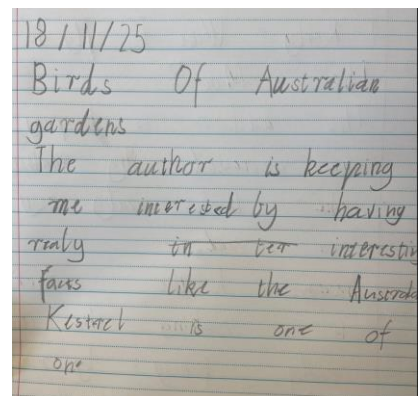 18/11/25
Birds Of Australian
gardens
The author is keeping
me interested by having
realy in ter interestin
facts like the Austrela
Kestrel is one of
one